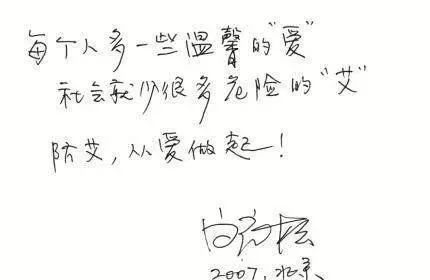 每个人多一些温馨的“爱”
社会就少很多危险的“艾”
防艾，从爱做起！
白岩松
2007.北京